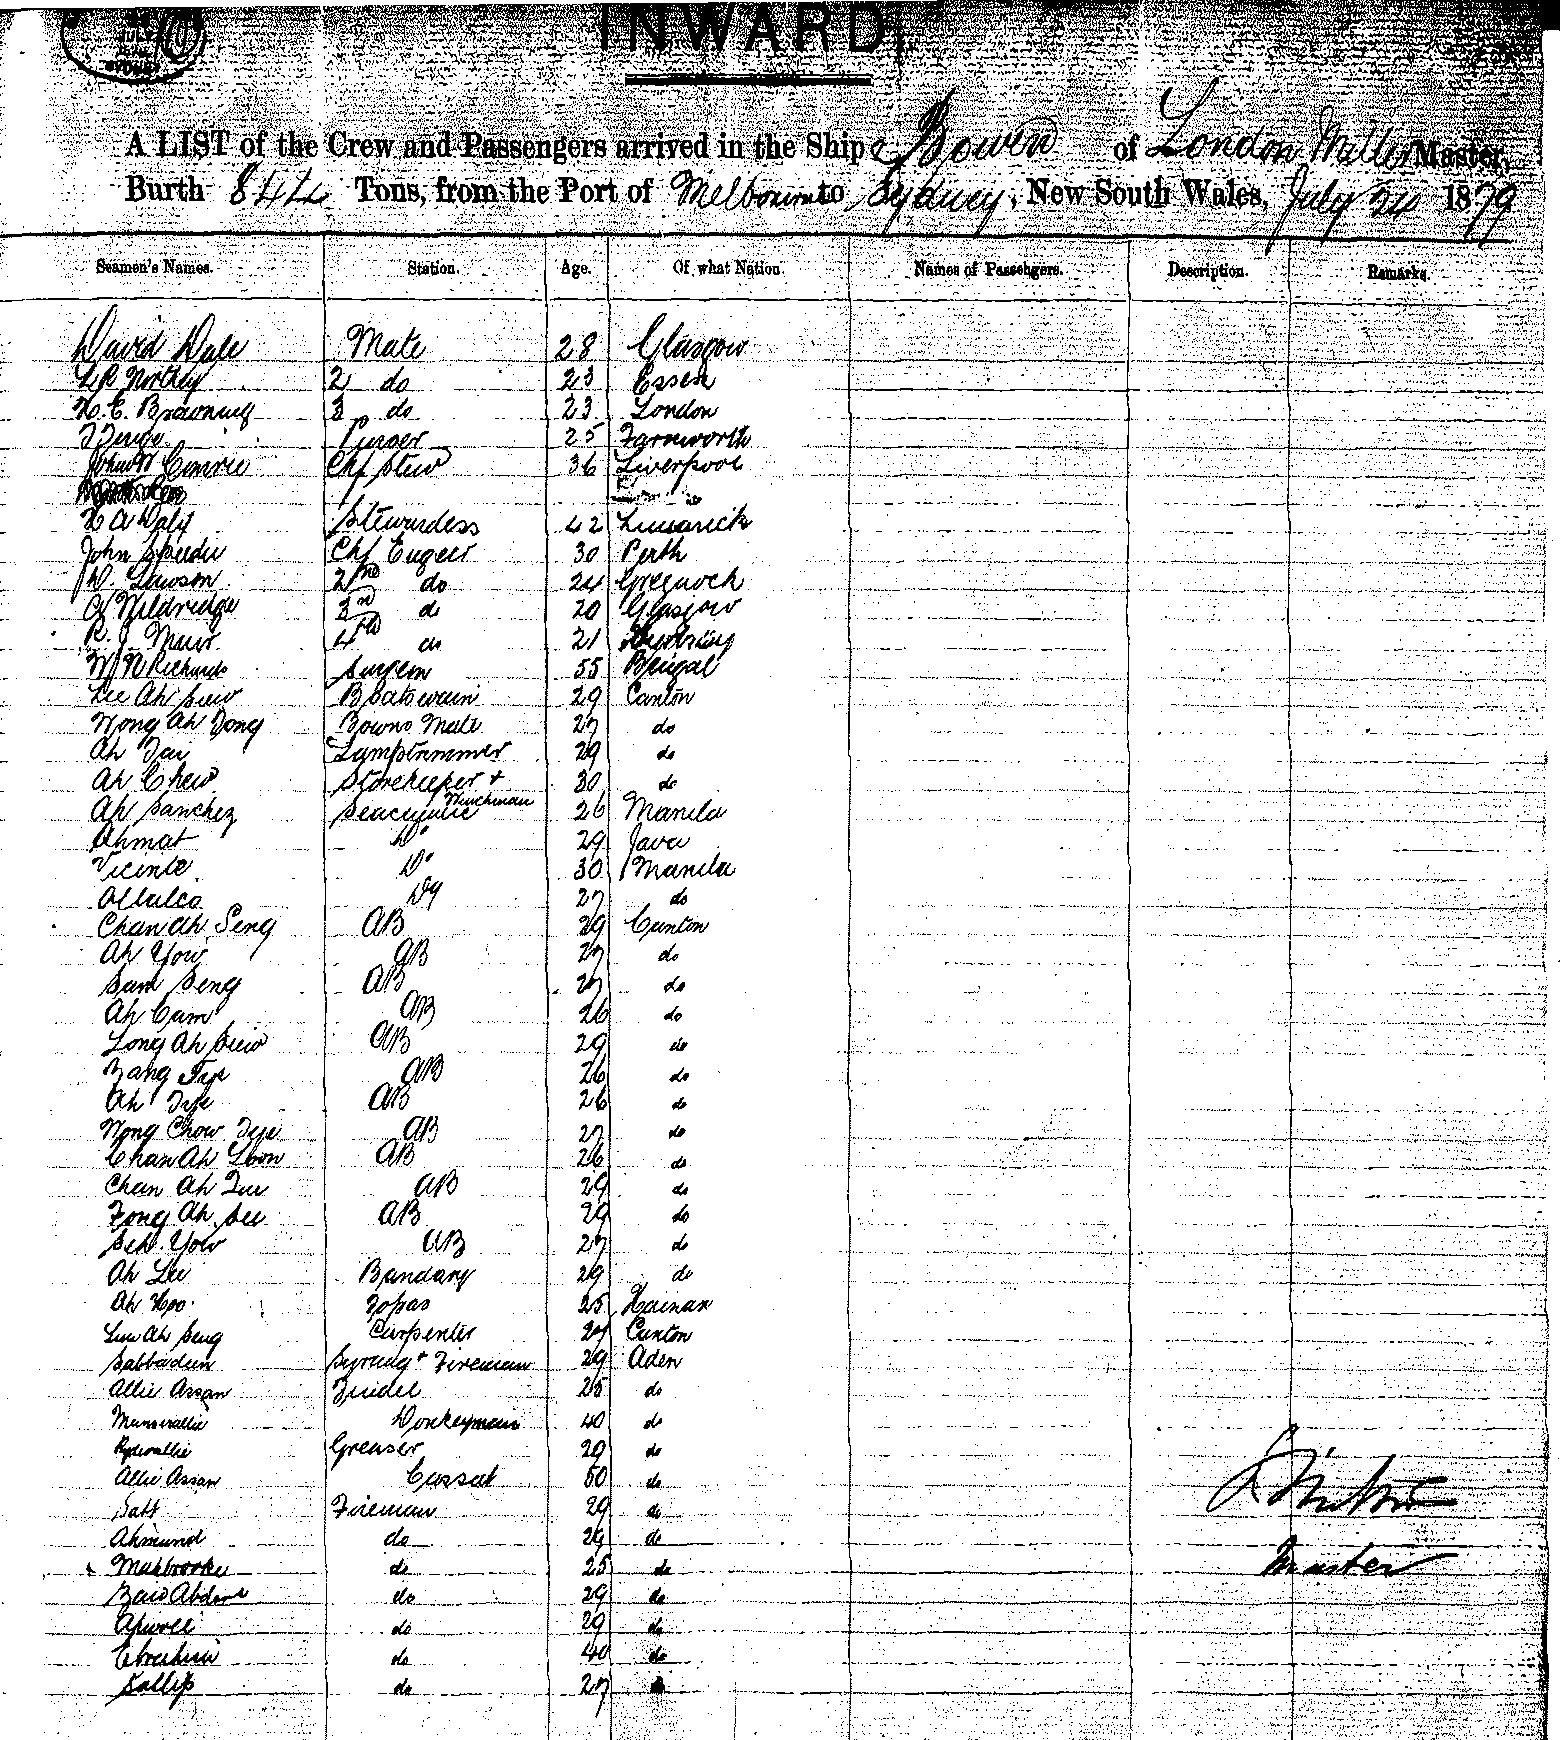 JULY
SYDNEY
INWARD
A LIST of the Crew and Passengers arrived in the Ship Bowen of London Miller Master,
Burth 844 Tons, from the Port of Melbourne to Sydney, New South Wales, July 24 1879
Seamen's Names. Station. Age. Of what Nation. Names of Passengers. Description. Remarks.
David Dale Mate 28 Glasgow
Northey 2 do 23 Essex
H. E. Browning 3 do 23 London
Purser 25 Farnworth
John Comrie Chf Stew 36 Liverpool
H A Daly Stewardess 42 Limerick
John Speedie Chf Engeer 30 Perth
W. Lawson 2nd do 24 Greenock
A Wildridge 3rd do 20 Glasgow
R. J Muir 4th do 21
W N Richards Surgeon 55 Bengal
Lee Ah Siew Boatswain 29 Canton
Wong Ah Dong Bowns Mate 27 do
Ah Tai Lamptrimmer 29 do
Ah Chew Storekeeper + Winchman 30 do
Ah Sanchez Seacunnie 26 Manila
Ahmat Do 29 Java
Vicente Do 30 Manila
Do 27 do
Chan Ah Seng AB 29 Canton
Ah Yow AB 27 do
Sam Seng AB 27 do
Ah Cam AB 26 do
Long Ah Siew AB 29 do
Zang Fye AB 26 do
Ah Fye AB 26 do
Wong Chow Fye AB 27 do
Chan Ah Loon AB 26 do
Chan Ah AB 29 do
Fong Ah See AB 29 do
Seh Yow AB 27 do
Ah Lee Bandary 29 do
Ah Hoo Topas 25 Hainan
Lum Ah Seng Carpenter 27 Canton
Sabbadeen Syrang + Fireman 29 Aden
Allie Assan Tindel 25 do
Donkeyman 40 do
Greaser 29 do
Allie Assan Cassab 50 do
Fireman 29 do
Ahmund do 29 do
Mahbrooke do 25 do
do 29 do
do 29 do
Ebrahim do 40 do
Sallip do 27 do
Master